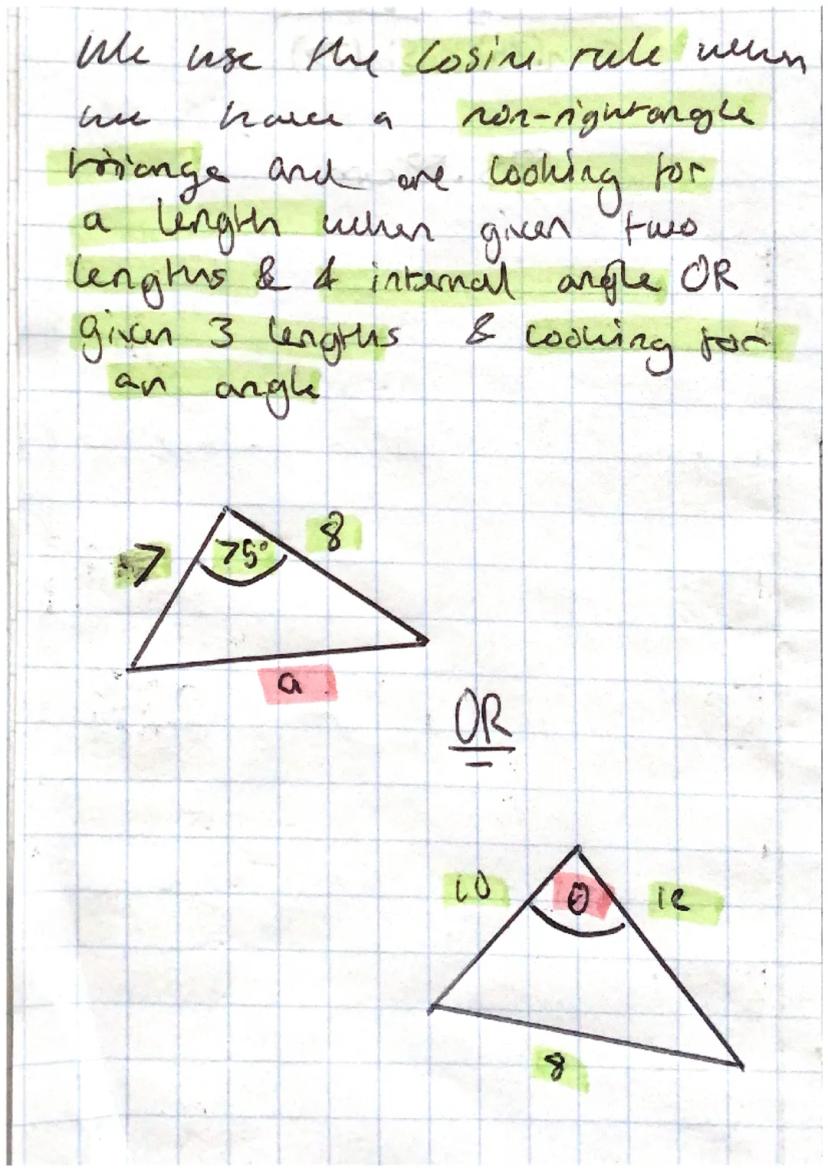 We use the cosine rule when
we have a non-rightangle
triange and are looking for
a length when given two
lengths & 1 internal angle OR
given 3 lengths & looking for
an angle
7 75° 8
a
OR
10 θ 12
8